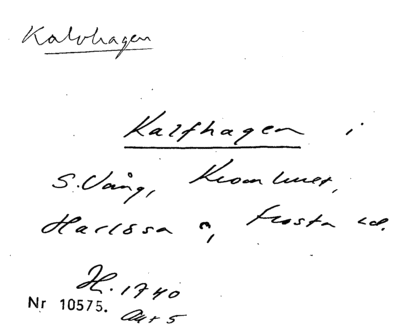 Kalvhagen
Kalfhagen i
S. Vång, Kromluset,
Harlösa n, Frosta hd.
H. 1740
Nr 10575. Akt 5